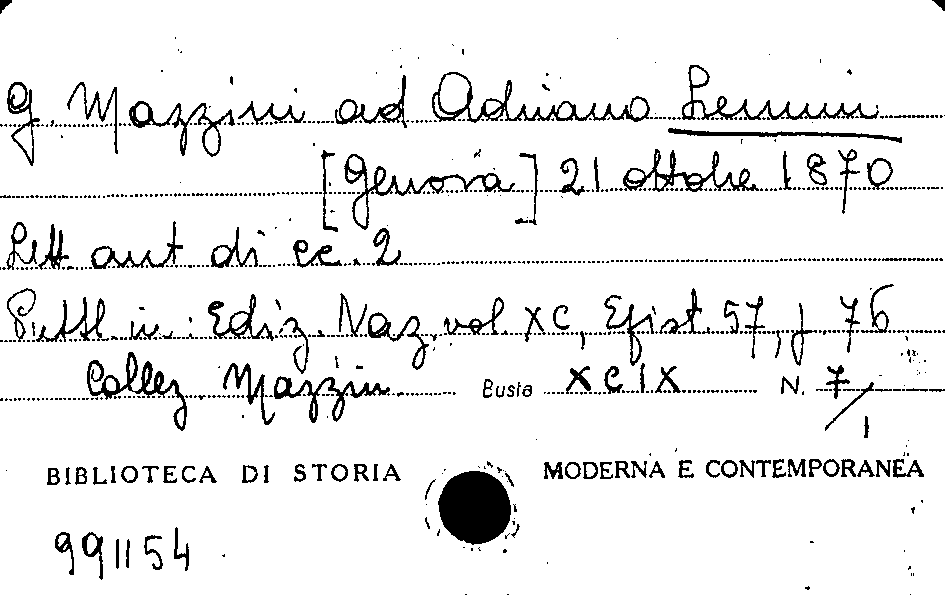 G. Mazzini ad Adriano Lemmi
[Genova] 21 ottobre 1870
Lett. aut. di cc. 2
Pubbl. in: Ediz. Naz. vol. XC, Epist. 57, p. 76
Collez. Mazzin. Busta XCIX N. 7/1
BIBLIOTECA DI STORIA MODERNA E CONTEMPORANEA
991154